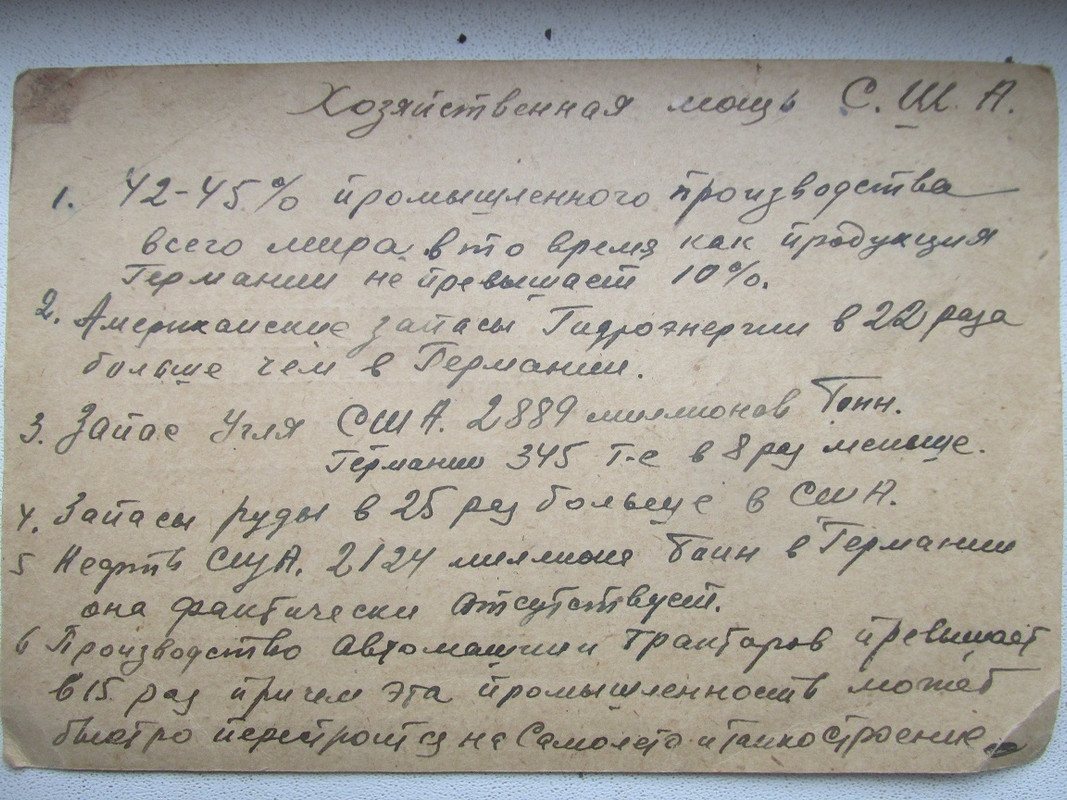 Хозяйственная мощь С.Ш.А.
1. 42-45% промышленного производства
всего мира в то время как продукция
Германии не превышает 10%.
2. Американские запасы Гидроэнергии в 22 раза
больше чем в Германии.
3. Запас Угля США. 2889 миллионов Тонн.
Германии 345 т-е в 8 раз меньше.
4. Запасы руды в 25 раз больше в США.
5 Нефть США. 2124 миллиона Тонн в Германии
она фактически отсутствует.
6 Производство Автомашин и Тракторов превышает
в 15 раз причем эта промышленность может
быстро перестроится на Самолето и танкостроение